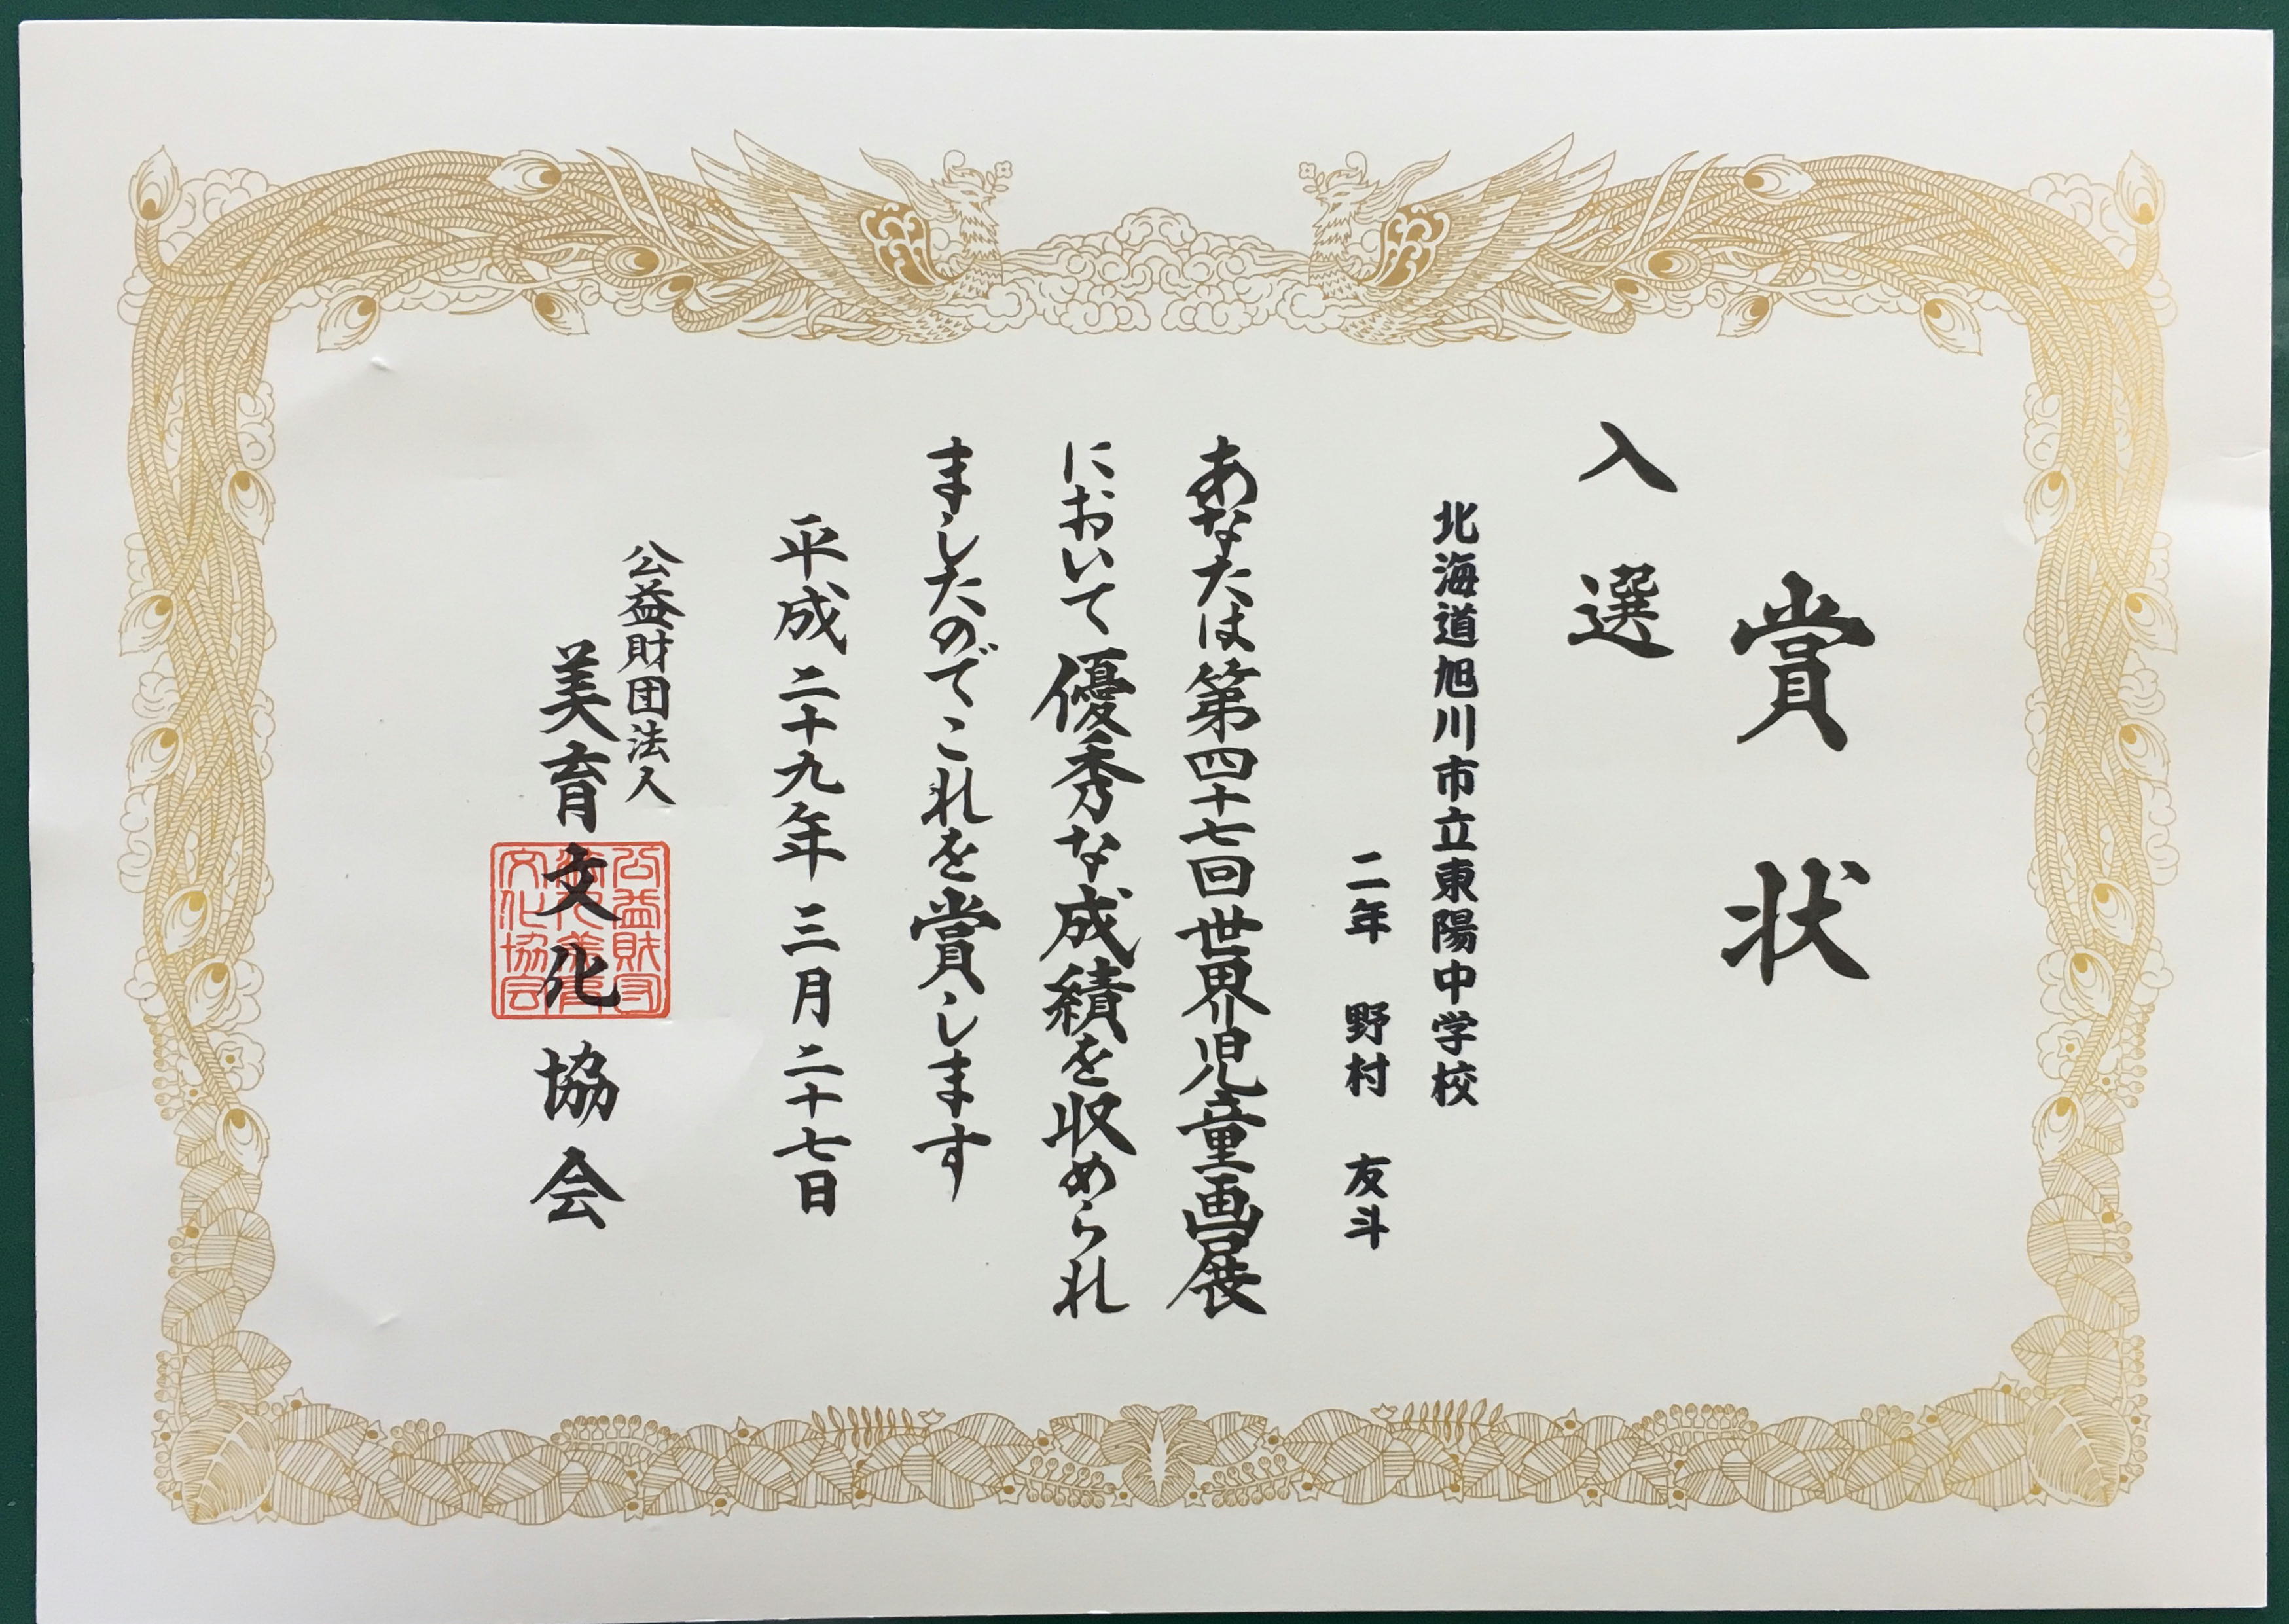 賞状
入選
北海道旭川市立東陽中学校
二年 野村 友斗
あなたは第四十七回世界児童画展
において優秀な成績を収められ
ましたのでこれを賞します
平成二十九年三月二十七日
公益財団法人
美育文化協会